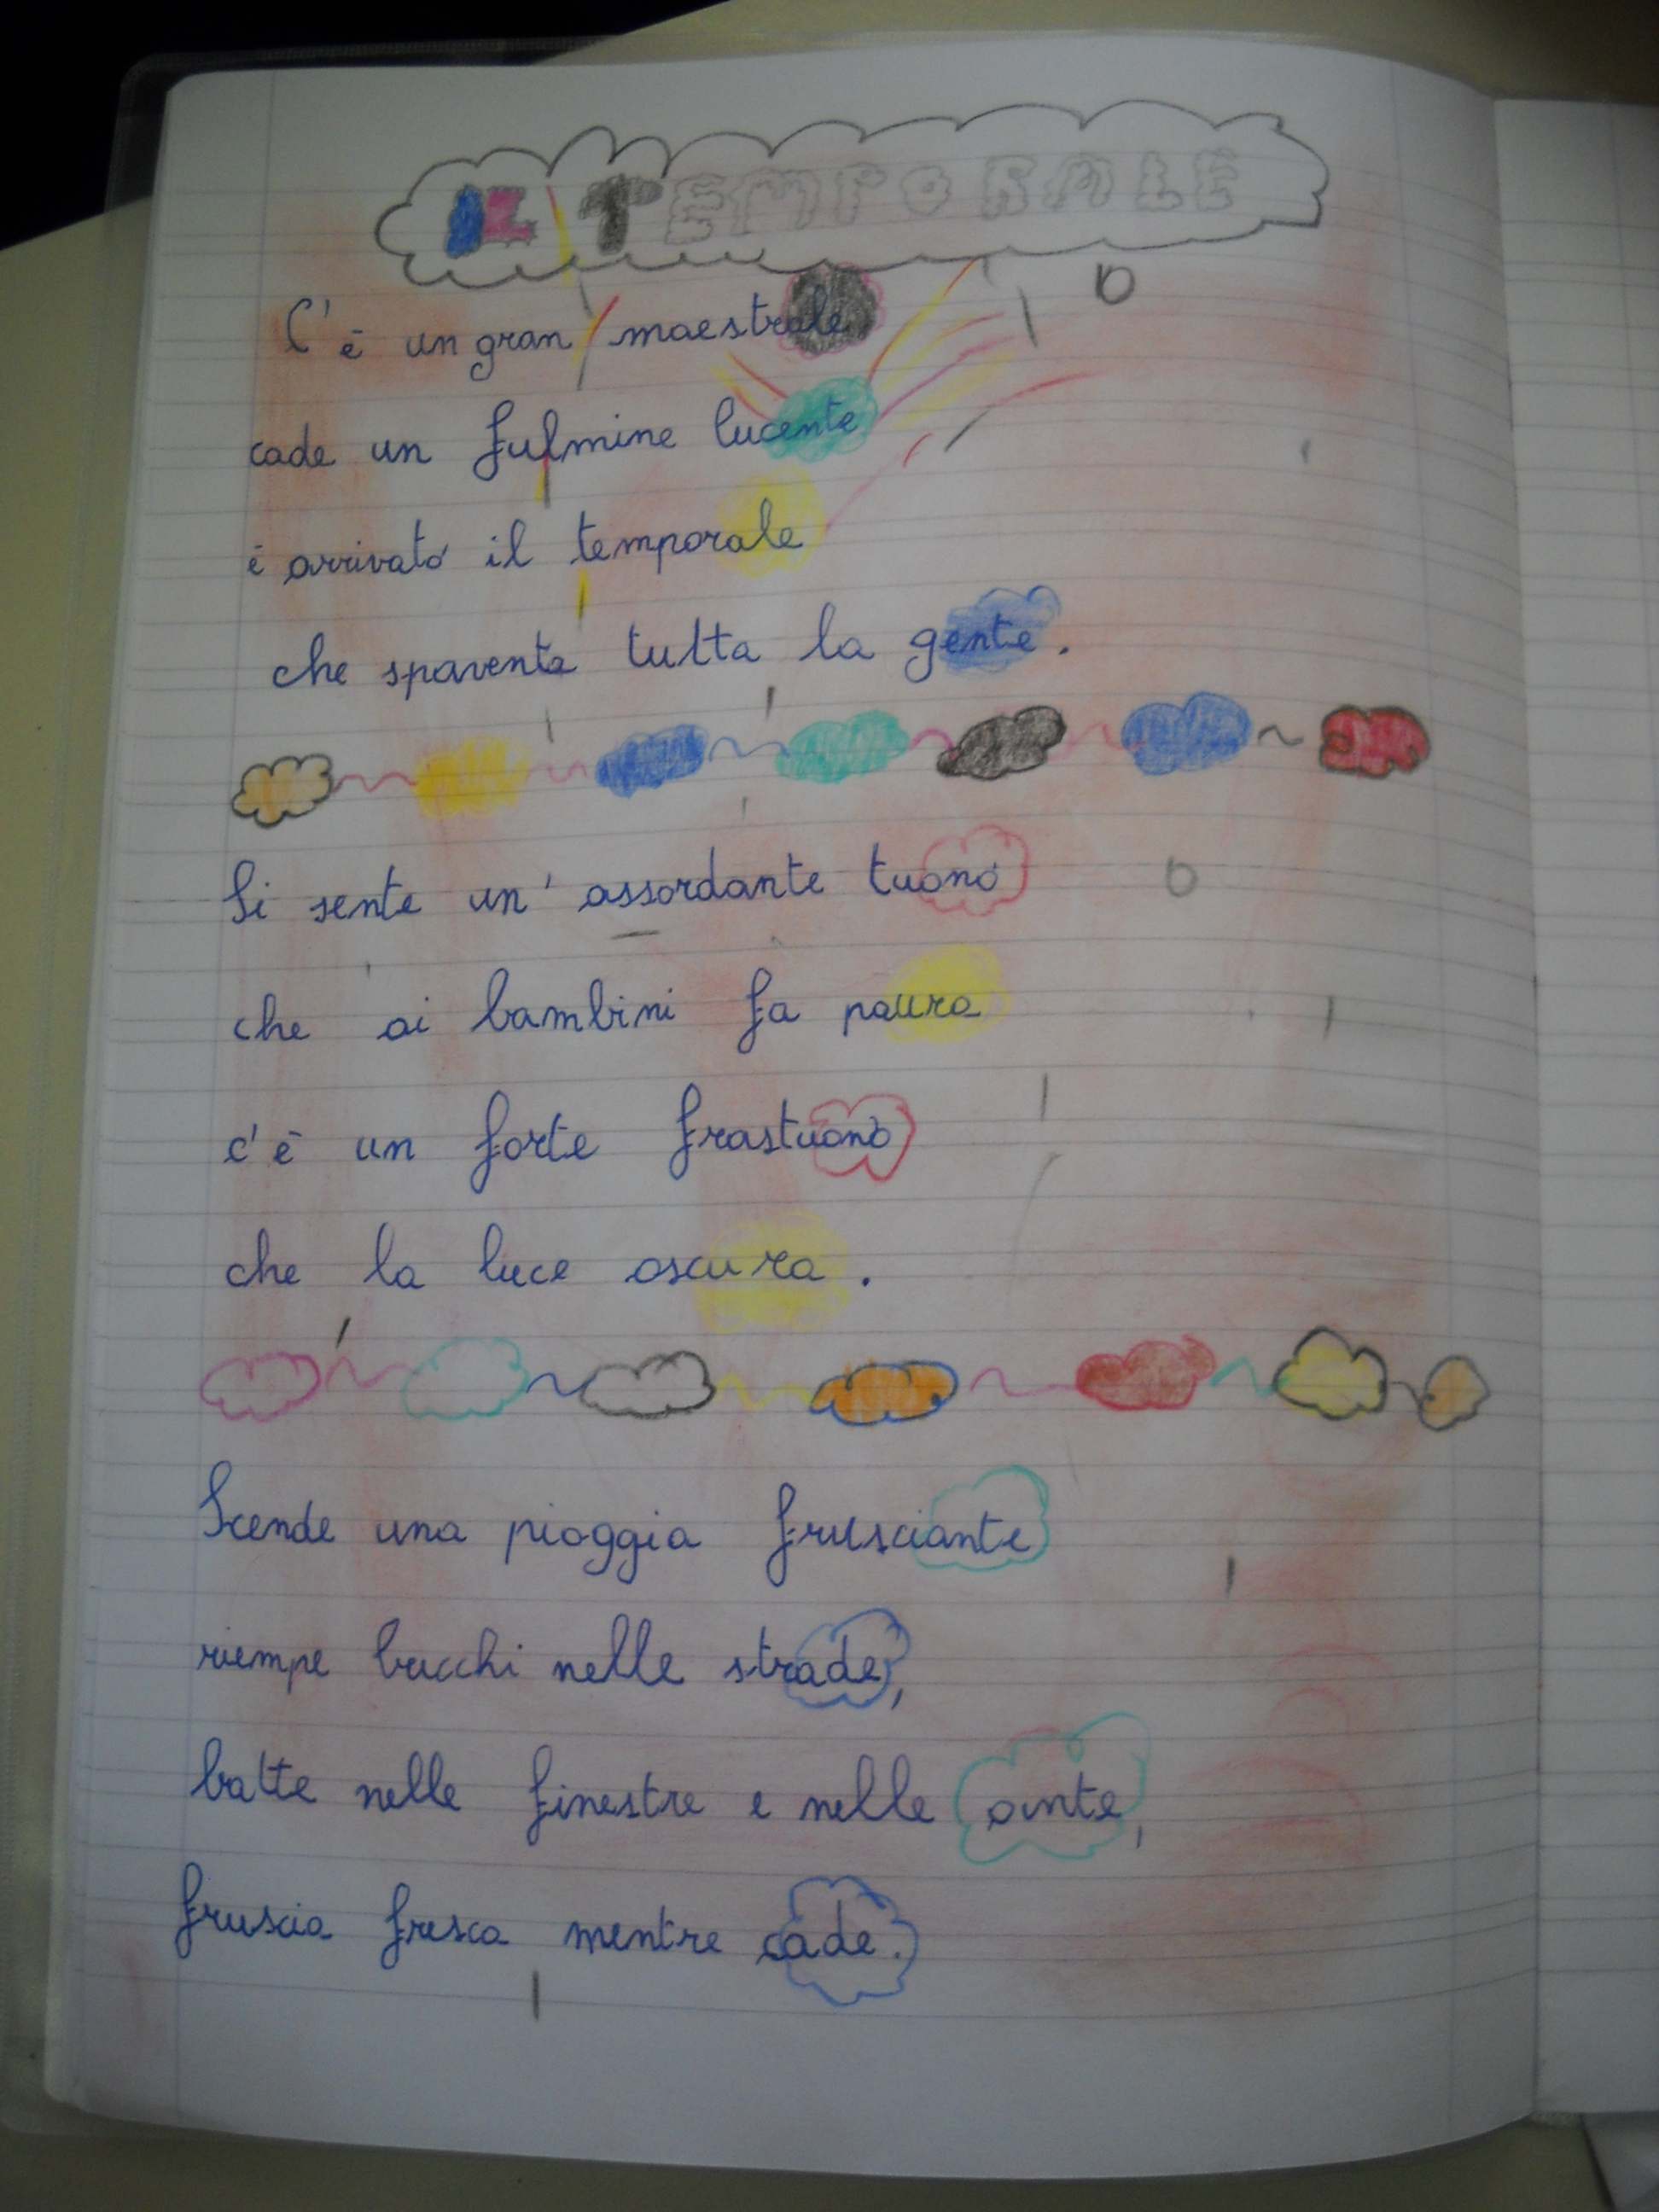 IL TEMPORALE
C'è un gran maestrale
cade un fulmine lucente
è arrivato il temporale
che spaventa tutta la gente.
Si sente un' assordante tuono
che ai bambini fa paura
c'è un forte frastuono
che la luce oscura.
Scende una pioggia frusciante
riempe bucchi nelle strade,
batte nelle finestre e nelle ante,
fruscia fresca mentre cade.